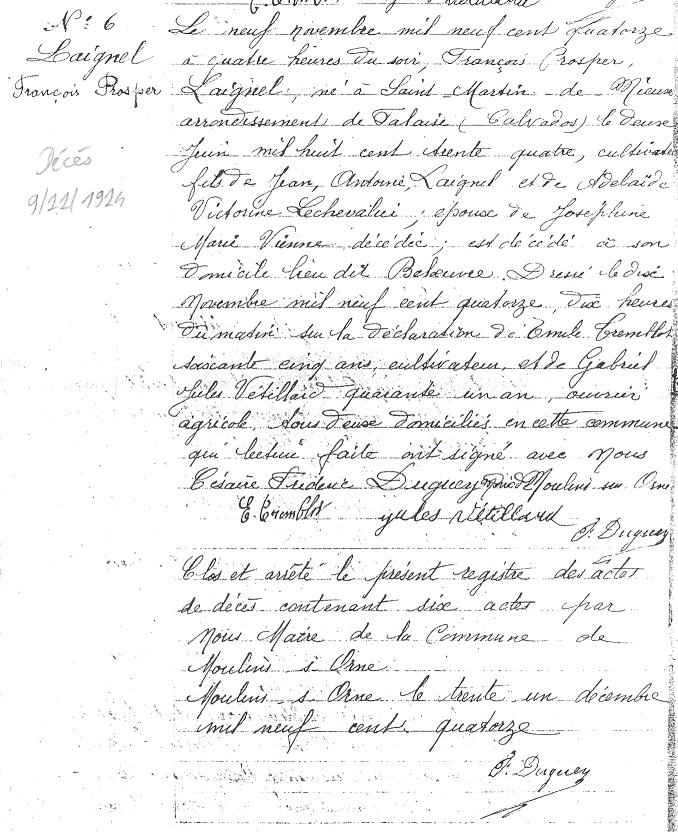 N° 6
Laignel
François Prosper
Décès
9/11/1914
Le neuf novembre mil neuf cent quatorze
à quatre heures du soir, François Prosper,
Laignel, né à Saint Martin de Mieux
arrondissement de Falaise (Calvados) le deux
Juin mil huit cent trente quatre, cultivateur
fils de Jean, Antoine, Laignel et de Adelaïde
Victorine Lechevalier; époux de Joséphine
Marie Vienne décédée; est décédé à son
domicile lieu dit Dressé le dix
Novembre mil neuf cent quatorze, dix heures
du matin sur la déclaration de Emile Tremblot
soixante cinq ans, cultivateur, et de Gabriel
Jules Vétillard quarante un an, ouvrier
agricole, tous deux domiciliés en cette commune
qui lecture faite ont signé avec Nous
Césaire Duguey Moulins sur Orne
E. Tremblot Jules Vétillard
F. Duguey
Clos et arrêté le présent registre des actes
de décès contenant six actes par
Nous Maire de la Commune de
Moulins s Orne
Moulins s Orne le trente un décembre
mil neuf cent quatorze
F. Duguey